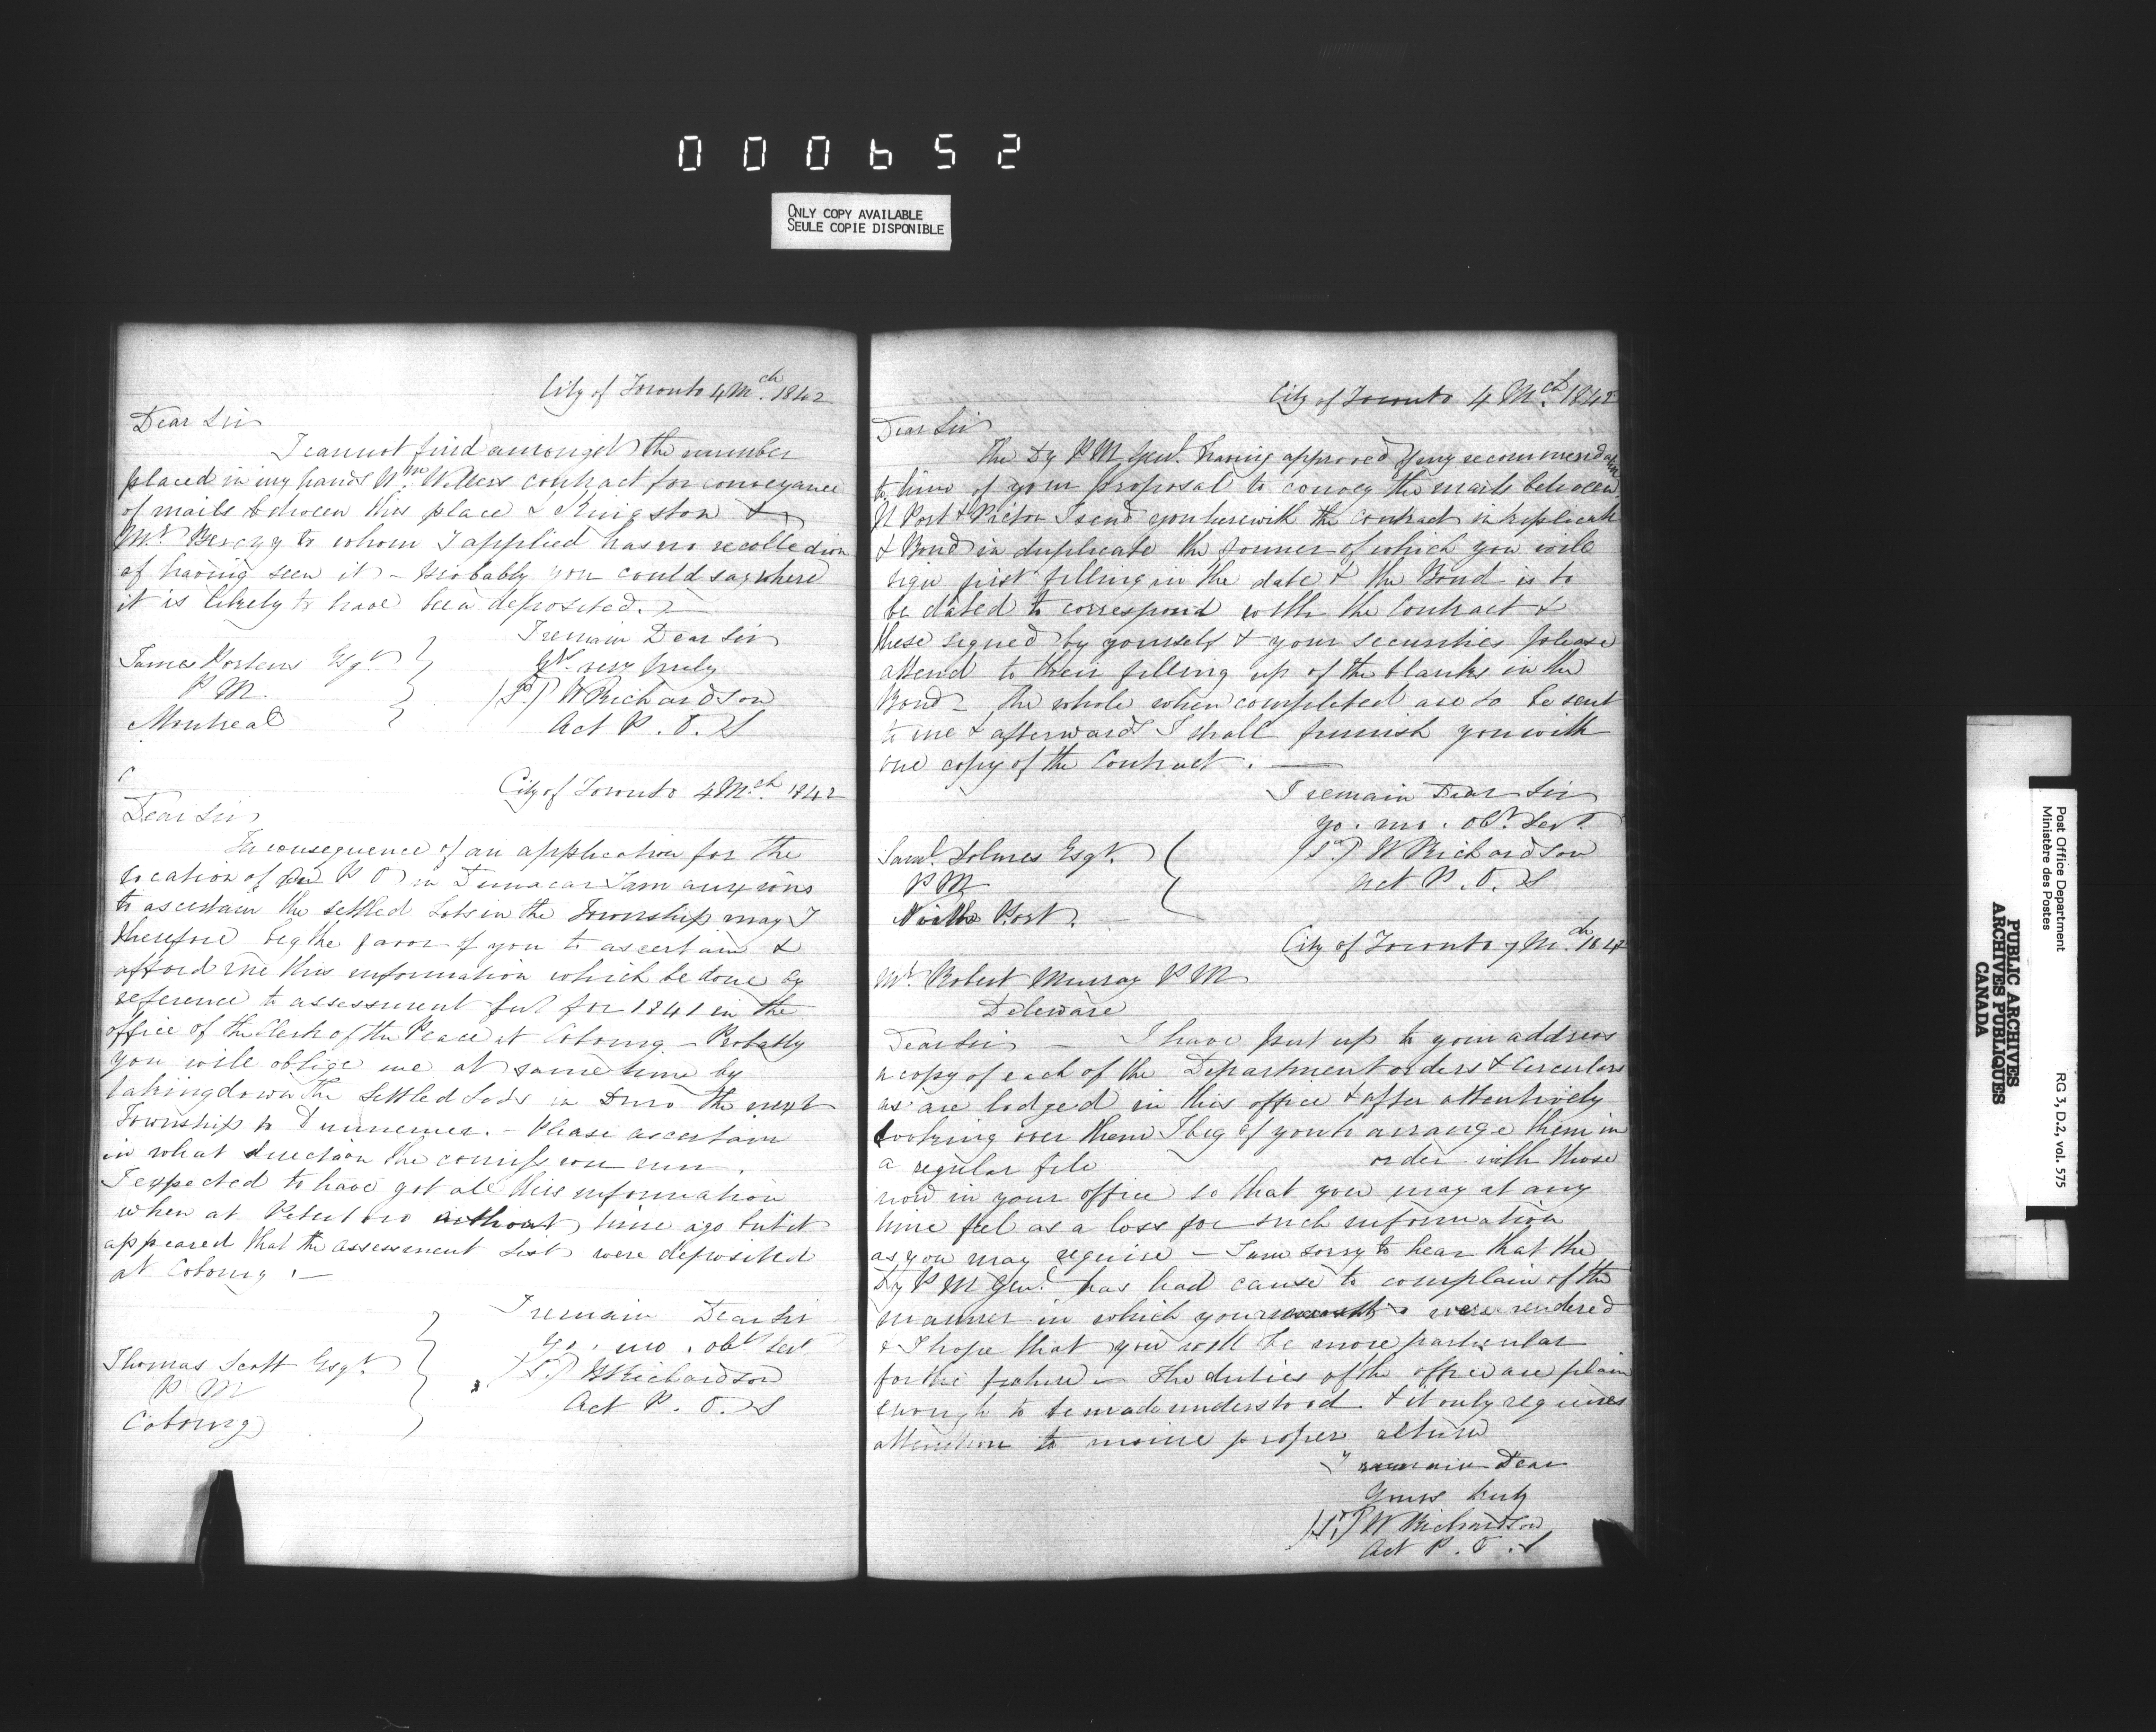 000652
ONLY COPY AVAILABLE
SEULE COPIE DISPONIBLE
City of Toronto 4 Mch. 1842
Dear Sir
I cannot find amongst the number
placed in my hands Wm. Wellers contract for conveyance
of mails between this place & Kingston &
Mr. Berczy to whom I applied has no recollection
of having seen it - probably you could say where
it is likely to have been deposited. -
I remain Dear Sir
Yrs. very truly
(Sd) W Richardson
Act P. O. S
James Porteus Esqr.
P M.
Montreal
City of Toronto 4 Mch. 1842
Dear Sir
In consequence of an application for the
location of a P O in I am anxious
to ascertain the settled Lots in the Township may I
therefore beg the favor of you to ascertain &
afford me this information which be done by
reference to assessment for 1841 in the
office of the Clerk of the Peace at Cobourg - Probably
you will oblige me at same time by
taking down the settled Lots in Duro the next
Township to Dummer. - Please ascertain
in what direction the run.
I expected to have got all this information
when at Peterboro time ago but it
appeared that the assessment List were deposited
at Cobourg. -
I remain Dear Sir
Yo. mo. obt Sert
(Sd) W Richardson
Act P. O. S
Thomas Scott Esqr.
P M
Cobourg
City of Toronto 4 Mch. 1842
Dear Sir
The Dy P M Genl. having approved of my recommendation
to him of your proposal to convey the mails between
N Port & Picton I send you herewith the contract in triplicate
& Bond in duplicate the former of which you will
sign first filling in the date & the Bond is to
be dated to correspond with the Contract &
these signed by yourself & your securities please
attend to their filling up of the blanks in the
Bond - the whole when completed are to be sent
to me & afterwards I shall furnish you with
one copy of the Contract. -
I remain Dear Sir
yo. mo. obt. Sert.
(Sd) W Richardson
Act P. O. S
Saml. Solmes Esqr.
P M
North Port.
City of Toronto 7 Mch. 1842
Mr. Robert Murray P M
Deleware
Dear Sir - I have put up to your address
a copy of each of the Department orders & Circulars
as are lodged in this office & after attentively
looking over them I beg of you to arrange them in
a regular file order with those
now in your office so that you may at any
time feel as a loss for such information
as you may require - I am sorry to hear that the
Dy P M Genl. has had cause to complain of the
manner in which your accounts were rendered
& I hope that you will be more particular
for the future - the duties of the office are plain
enough to be made understood & it only requires
attention to proper
I remain Dear
Yours truly
(Sd) W Richardson
Act P. O. S
Post Office Department
Ministère des Postes
RG 3, D.2, vol. 575
PUBLIC ARCHIVES
ARCHIVES PUBLIQUES
CANADA